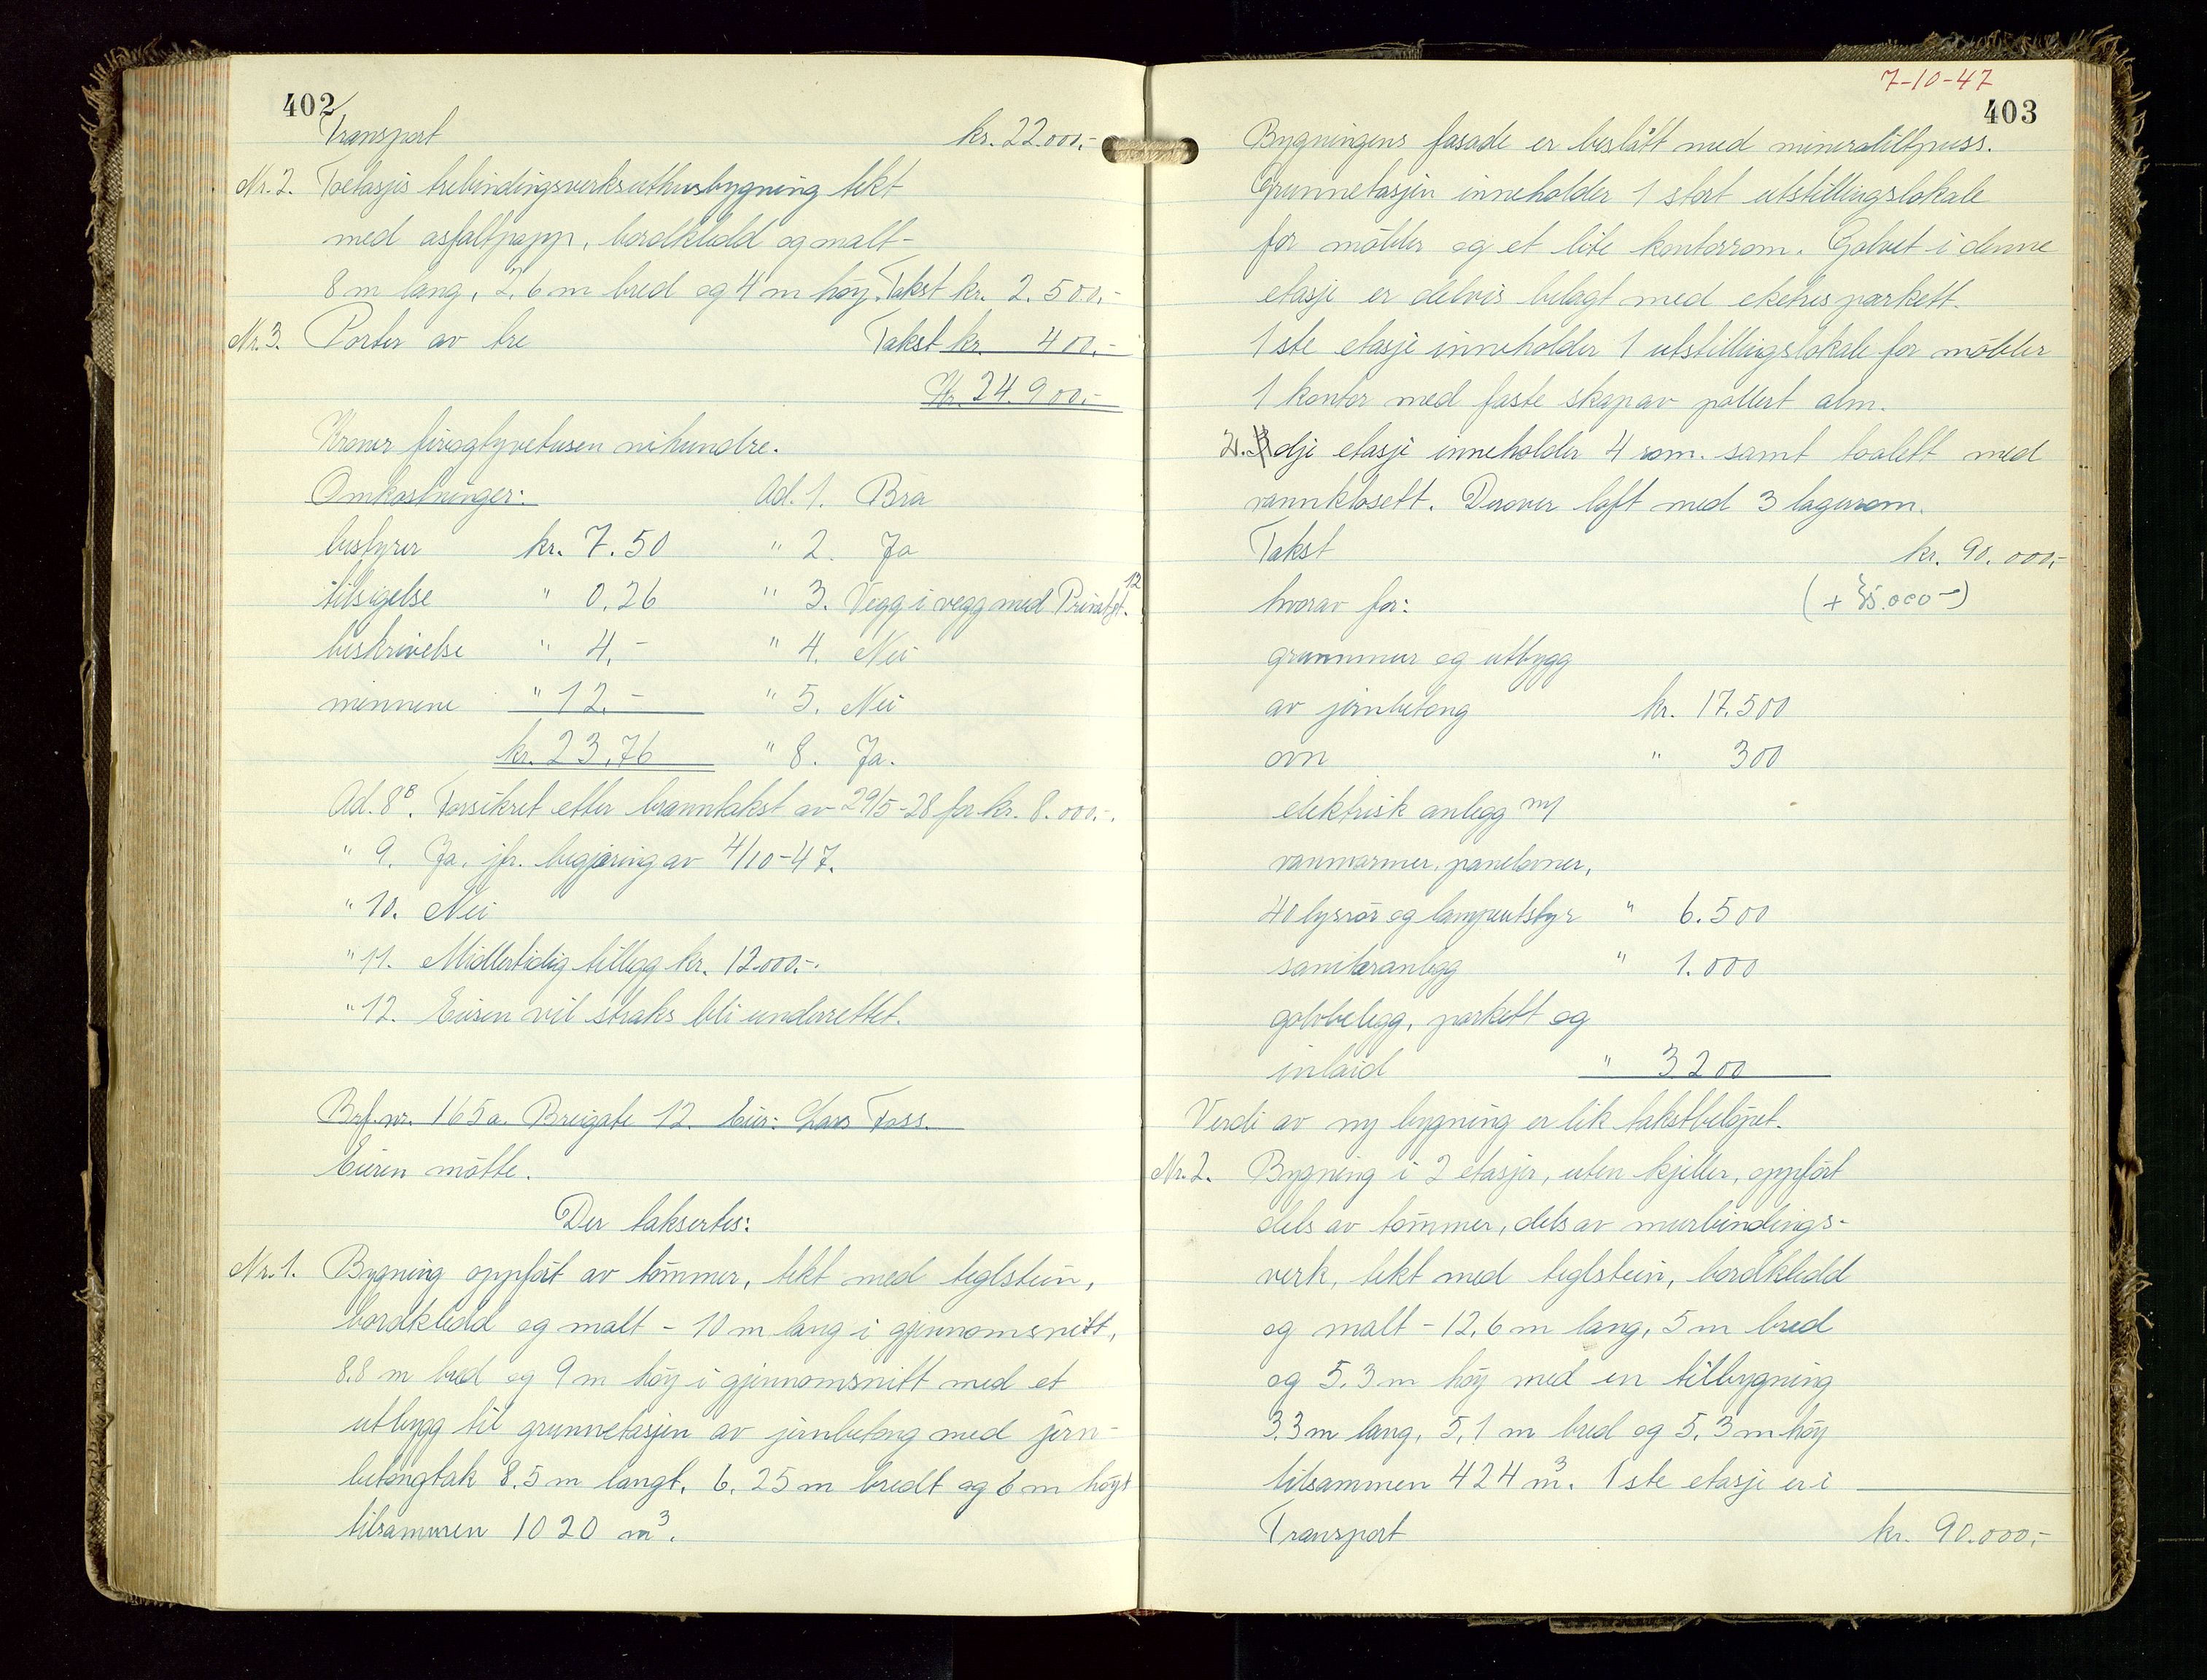 402
Transport kr. 22.000.-
Nr. 2. Toetasjis trebindingsverksuthusbygning tekt
med asfaltpapp, bordkledd og malt -
8 m lang, 2.6 m bred og 4 m høy. Takst kr. 2.500.-
Nr. 3. Porter av tre Takst kr. 400.-
Kr. 24.900.-
Kroner fireogtyvetusen nihundre.
Omkostninger: Ad. 1. Bra
bestyrer kr. 7.50 " 2. Ja
tilsigelse " 0.26 " 3. Vegg i vegg med Privatgt. 12
beskrivelse " 4.- " 4. Nei
mennene " 12.- " 5. Nei
kr. 23.76 " 8. Ja.
Ad. 8B. Forsikret etter branntakst av 29/5-28 for kr. 8.000.-.
" 9. Ja. jfr. begjæring av 4/10-47.
" 10. Nei
" 11. Midlertidig tillegg kr. 12.000.-.
" 12. Eieren vil straks bli underrettet.
Brf. nr. 165a. Breigate 12. Eier: Lars Foss.
Eieren møtte.
Der taksertes:
Nr. 1. Bygning oppført av tømmer, tekt med teglstein,
bordkledd og malt - 10 m lang i gjennomsnitt,
8.8 m bred og 9 m høy i gjennomsnitt med et
utbygg til grunnetasjen av jernbetong med jern-
betongtak 8.5 m langt, 6.25 m bredt og 6 m høyt
tilsammen 1020 m³.
7-10-47
403
Bygningens fasade er beslått med mineralittpuss.
Grunnetasjen inneholder 1 stort utstillingslokale
for møbler og et lite kontorrom. Golvet i denne
etasje er delvis belagt med eketres parkett.
1ste etasje inneholder 1 utstillingslokale for møbler
1 kontor med faste skap av pollert alm.
2. dje etasje inneholder 4 rom. samt toalett med
vannklosett. Derover loft med 3 lagerrom.
Takst kr. 90.000,-
hvorav for: (+ 35.000-)
grunnmur og utbygg
av jernbetong kr. 17.500
ovn " 300
elektrisk anlegg m/
vannvarmer, panelovner,
40 lysrør og lampeutstyr " 6.500
sanitæranlegg " 1.000
golvbelegg, parkett og
inlaid " 3200
Verdi av ny bygning er lik takstbeløpet.
Nr. 2. Bygning i 2 etasjer, uten kjeller, oppført
dels av tømmer, dels av murbindings-
verk, tekt med teglstein, bordkledd
og malt - 12.6 m lang, 5 m bred
og 5.3 m høy med en tilbygning
3.3 m lang, 5.1 m bred og 5.3 m høy
tilsammen 424 m³. 1ste etasje er i
Transport kr. 90.000,-